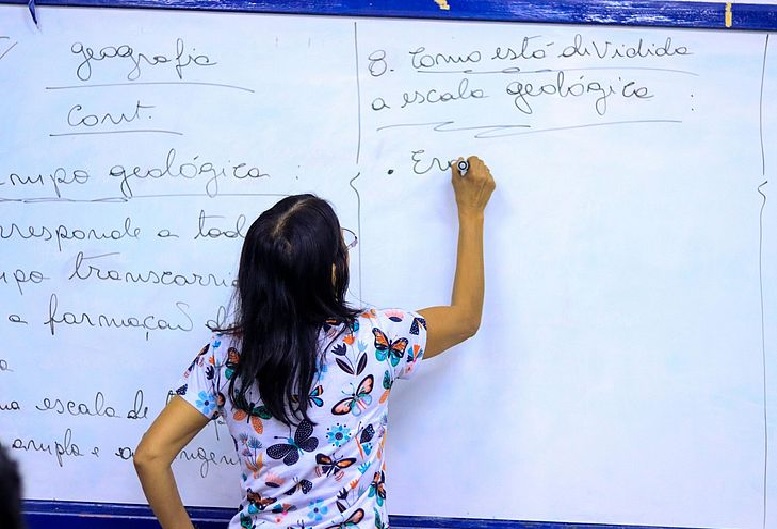 geografia
Cont.
mpo geológica :
rresponde a tod
po transcorri
a formaçaõ d
a
ma escala de
ampla e
8. Como está dividida
a escala geológica :
. Er